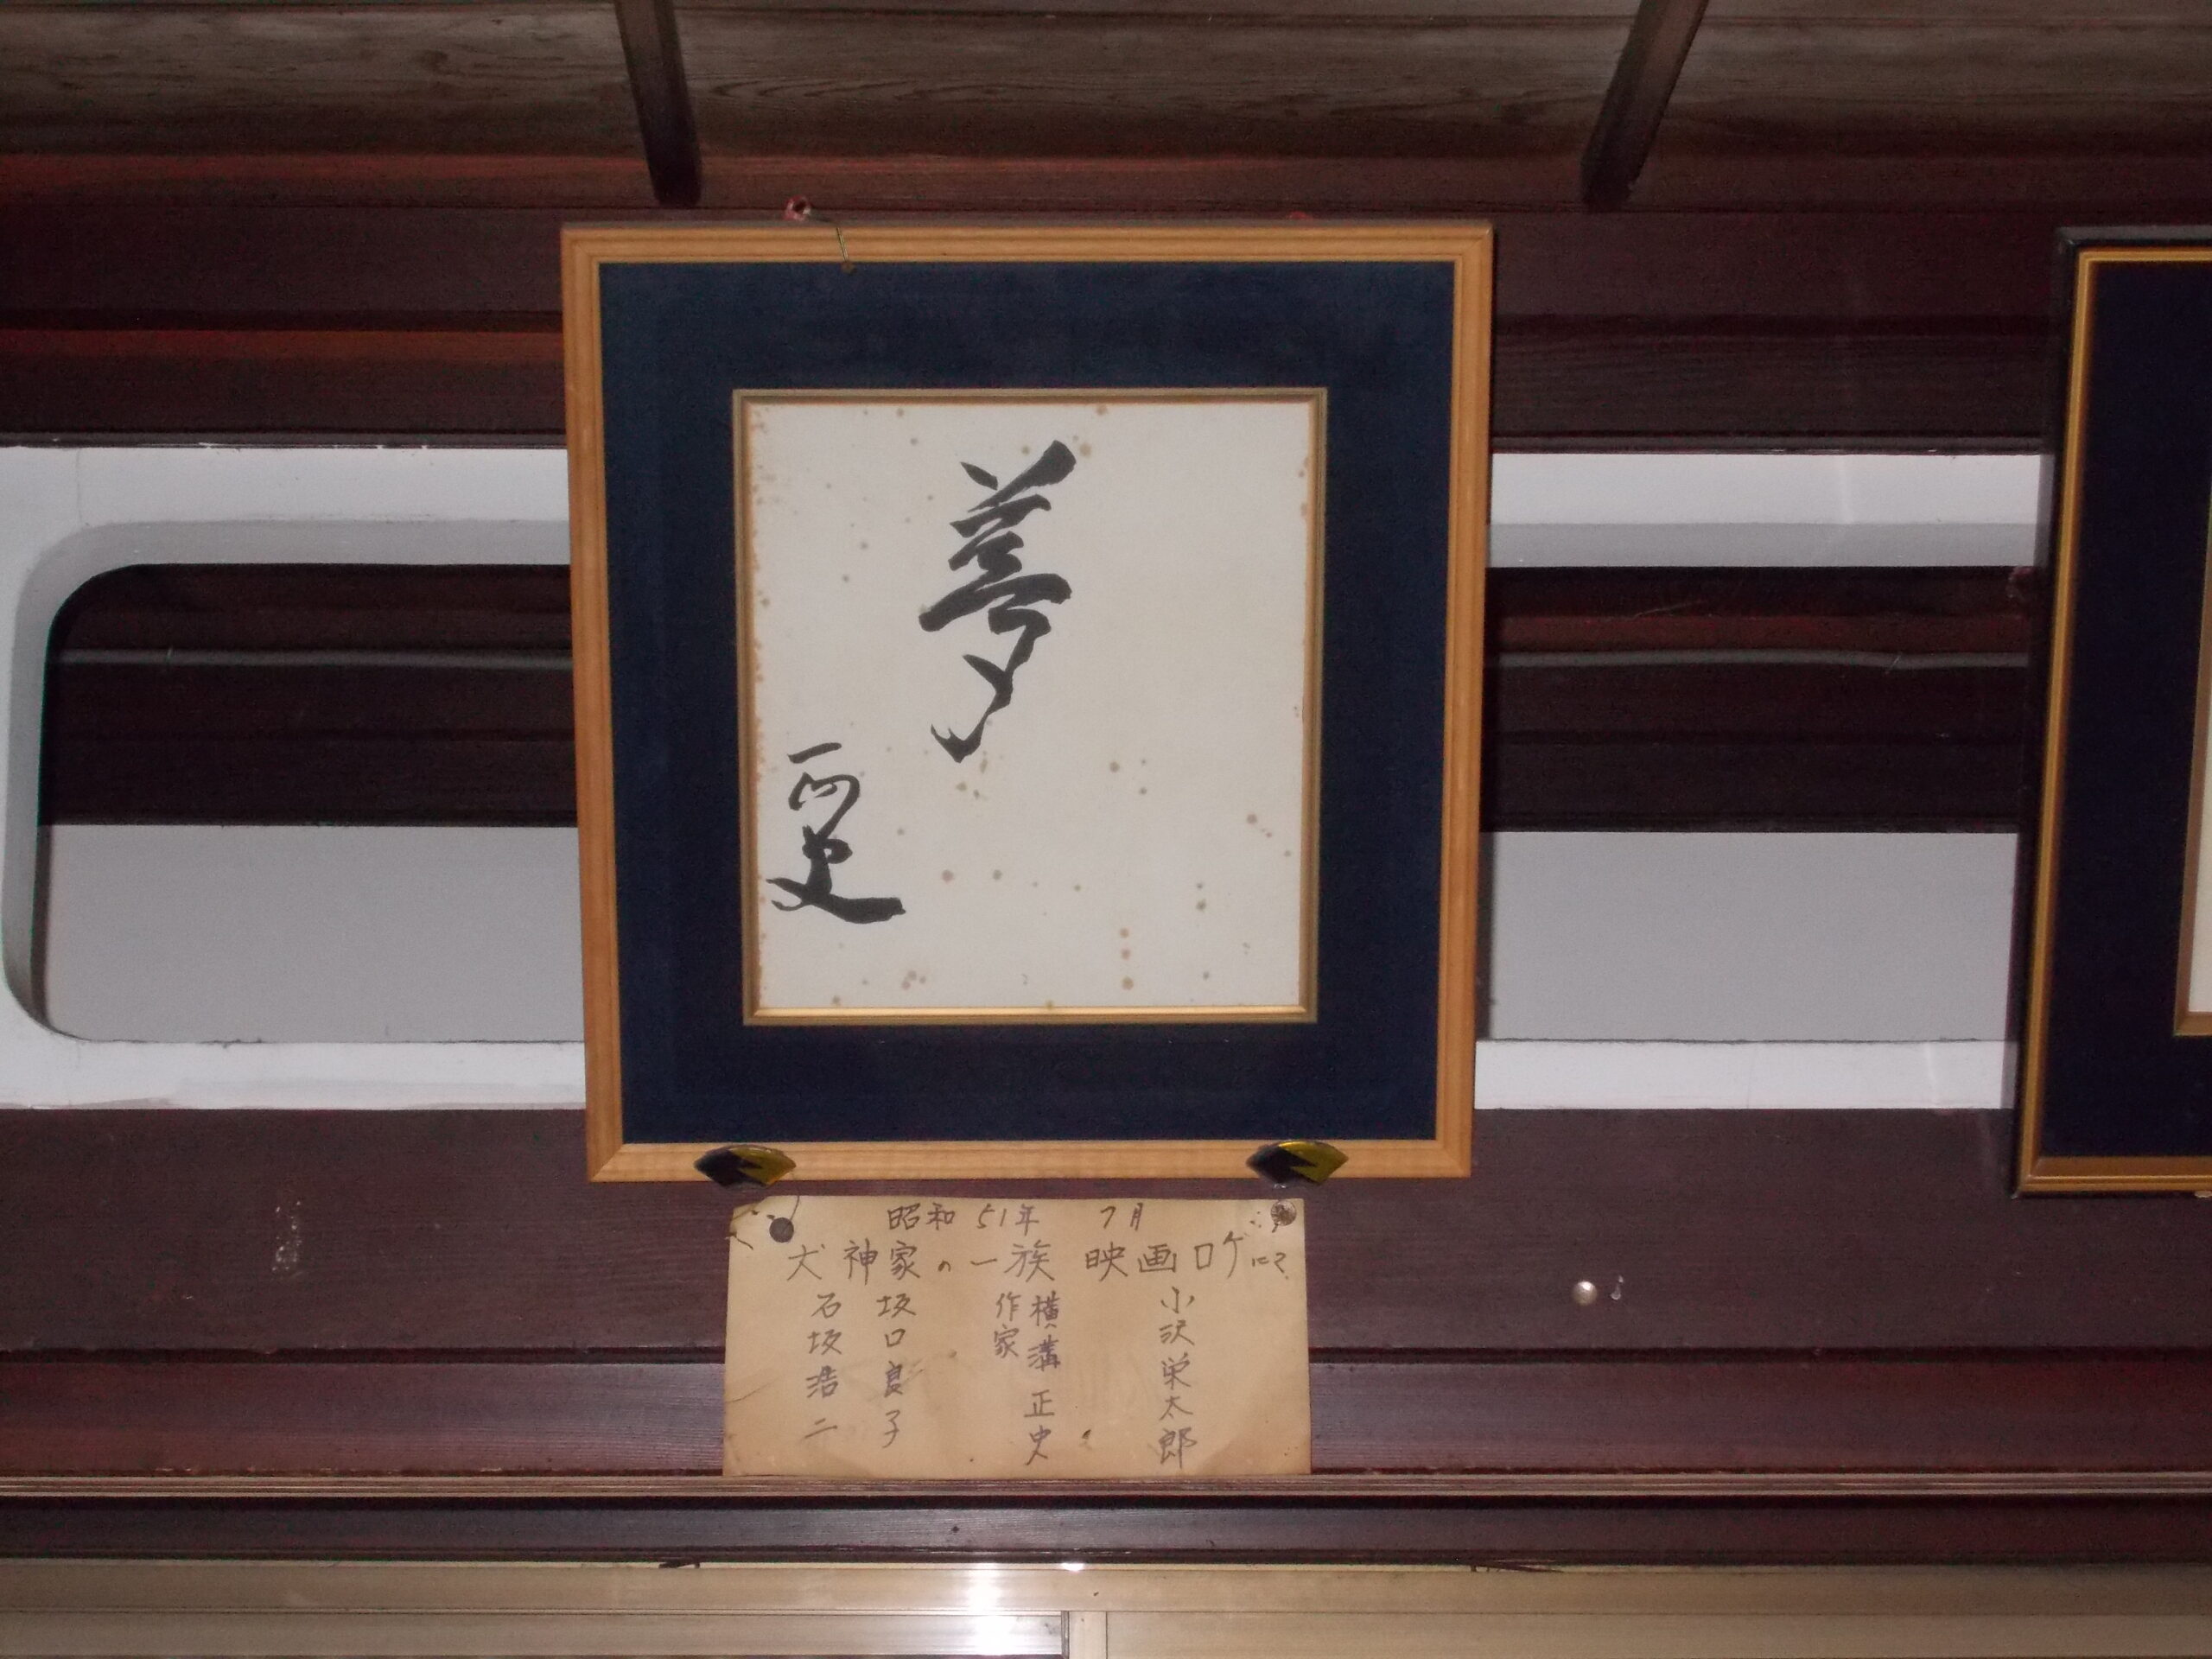 夢
正史
昭和51年 7月
犬神家の一族 映画ロケにて
小沢栄太郎
横溝正史
作家
坂口良子
石坂浩二